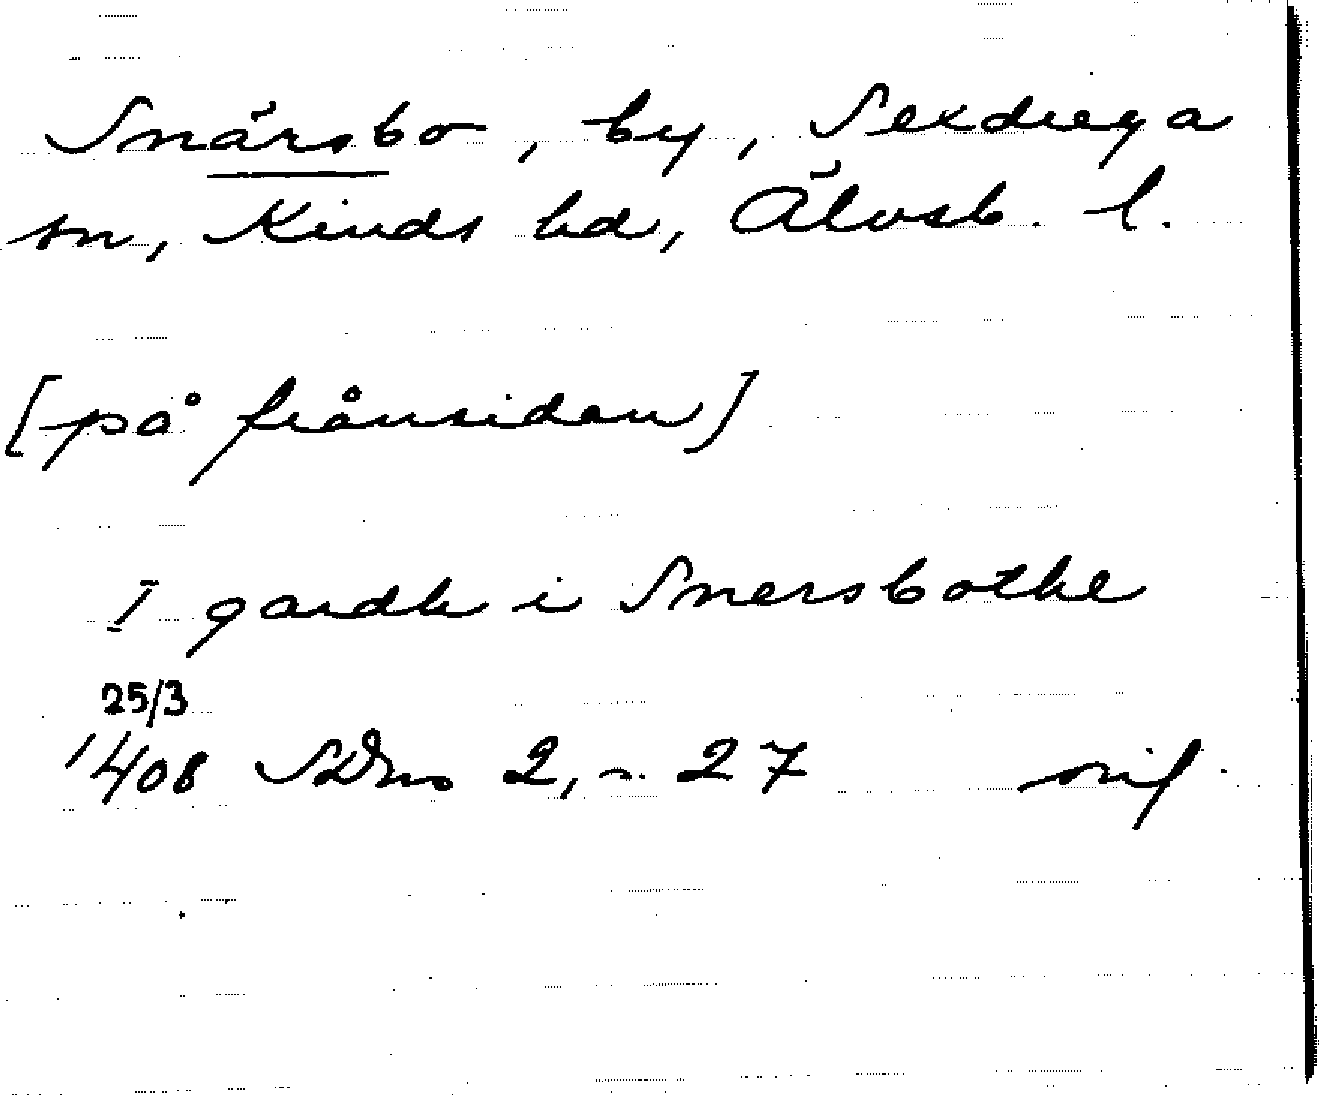 Snärsbo, by, Sexdrega
sn, Kinds hd, Älvsb. l.
[på frånsidan]
I gardh i Snersbothe
25/3
1408 SDns 2, s. 27 orig.